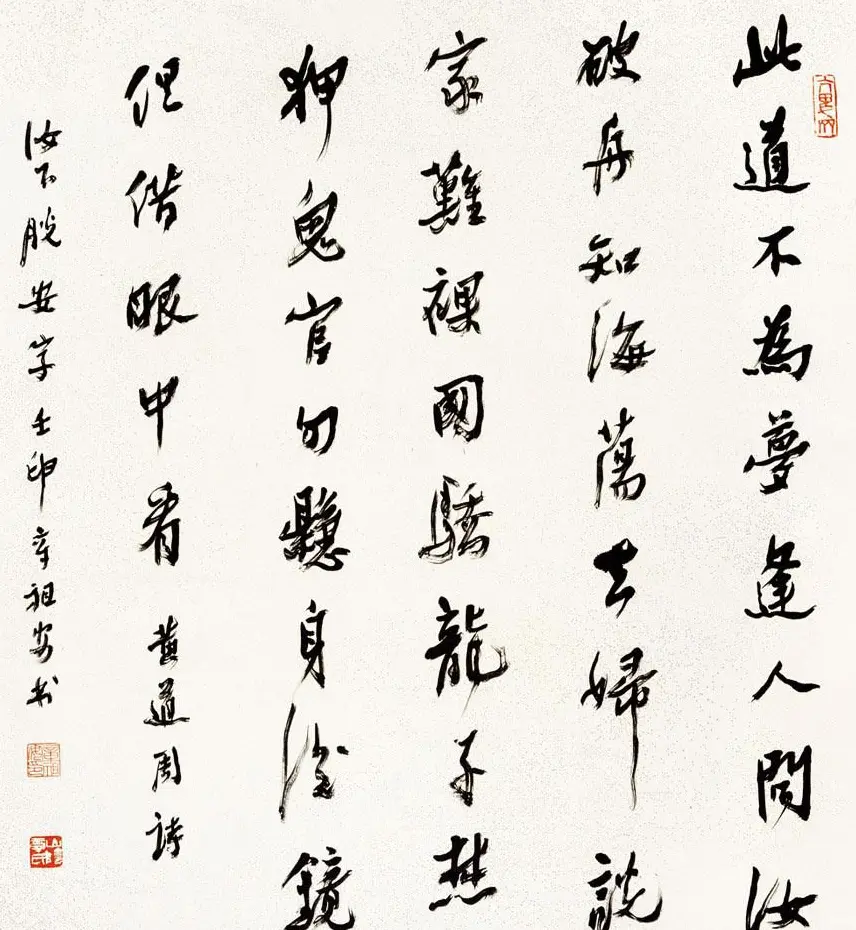 此道不為夢逢人問汝
破舟知海蕩去婦說
家難裸國驕龍子焚
狎鬼官勿懸身後鏡
但借眼中看 黃道周詩
汝下脫安字壬申辛祖安書